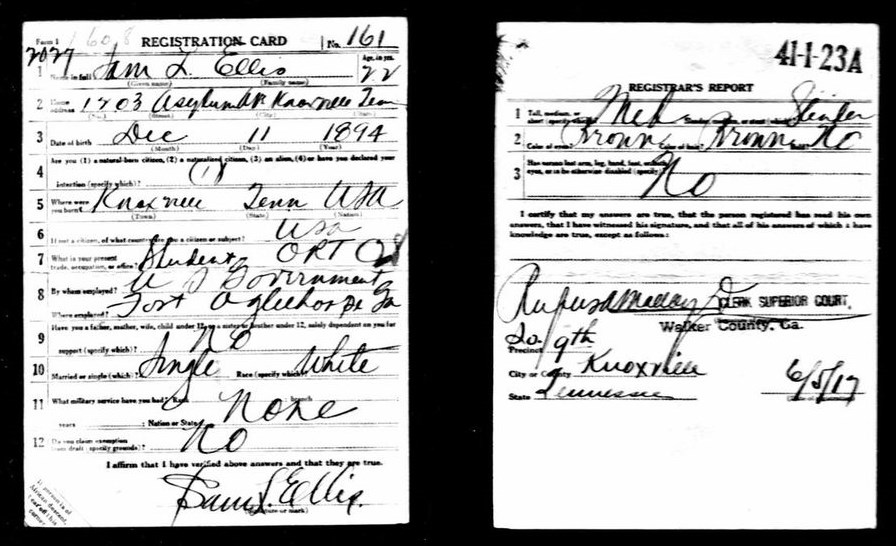 Form 1 1608 REGISTRATION CARD No. 161
2027
1 Name in full Sam L. Ellis Age, in yrs. 22
(Given name) (Family name)
2 Home address 1203 Asylum Av Knoxville Tenn
(No.) (Street) (City) (State)
3 Date of birth Dec 11 1894
(Month) (Day) (Year)
Are you (1) a natural-born citizen, (2) a naturalized citizen, (3) an alien, (4) or have you declared your
4 intention (specify which)? (1)
5 Where were you born? Knoxville Tenn USA
(Town) (State) (Nation)
6 USA
If not a citizen, of what country are you a citizen or subject?
7 What is your present trade, occupation, or office? Student ORTC
8 By whom employed? U S Government
Where employed? Fort Oglethorpe Ga
Have you a father, mother, wife, child under 12, or a sister or brother under 12, solely dependent on you for
9 support (specify which)? No
10 Married or single (which)? Single Race (specify which)? White
11 What military service have you had? Rank None branch
years ; Nation or State
12 Do you claim exemption from draft (specify grounds)? No
I affirm that I have verified above answers and that they are true.
Sam L. Ellis.
(Signature or mark)
If person is of
African descent,
tear off this
corner
41-1-23A
REGISTRAR'S REPORT
1 Tall, medium, or short (specify which)? Med Slender, medium, or stout (which)? Slender
2 Color of eyes? Brown Color of hair? Brown Bald? No
3 Has person lost arm, leg, hand, foot, or both eyes, or is he otherwise disabled (specify)? No
I certify that my answers are true, that the person registered has read his own
answers, that I have witnessed his signature, and that all of his answers of which I have
knowledge are true, except as follows:
CLERK SUPERIOR COURT,
Walker County, Ga.
Precinct 20/9th
City or County Knoxville
State Tennessee 6/5/17